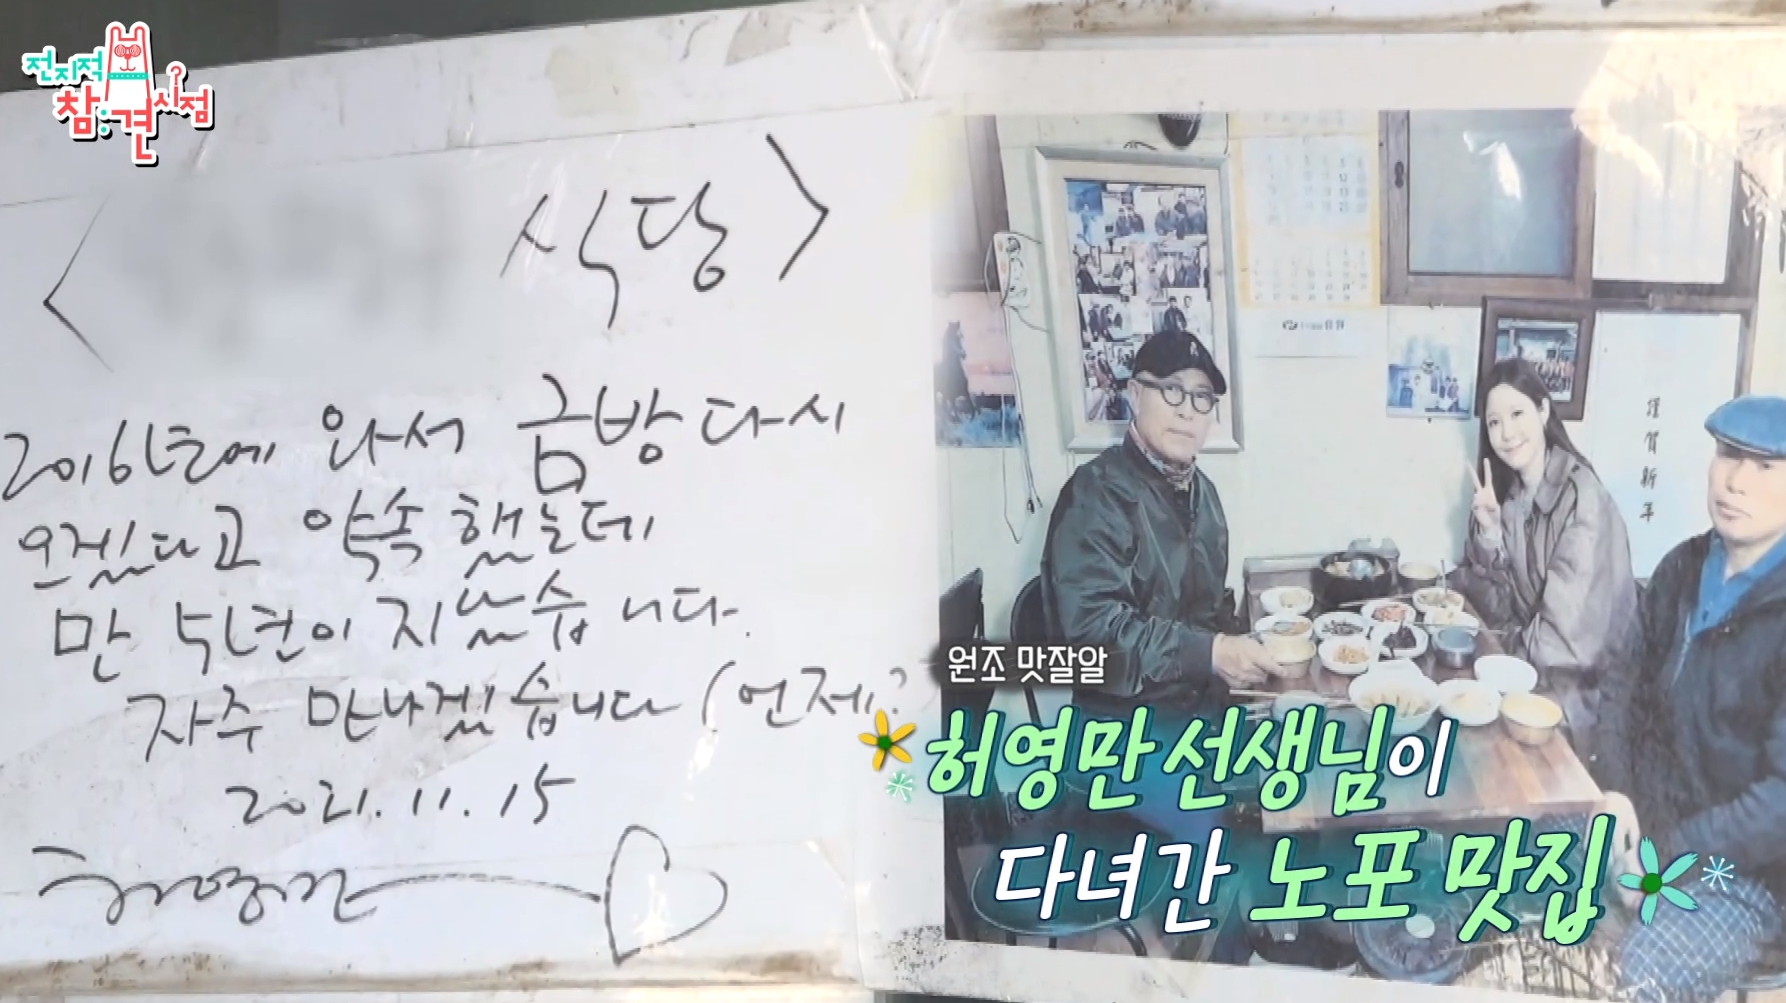 전지적
참견시점
< 식당 >
2016년에 와서 금방 다시
오겠다고 약속 했는데
만 5년이 지났습니다.
자주 만나겠습니다 (언제?
2021.11.15
허영만
謹賀新年
원조 맛잘알
허영만 선생님이
다녀간 노포 맛집